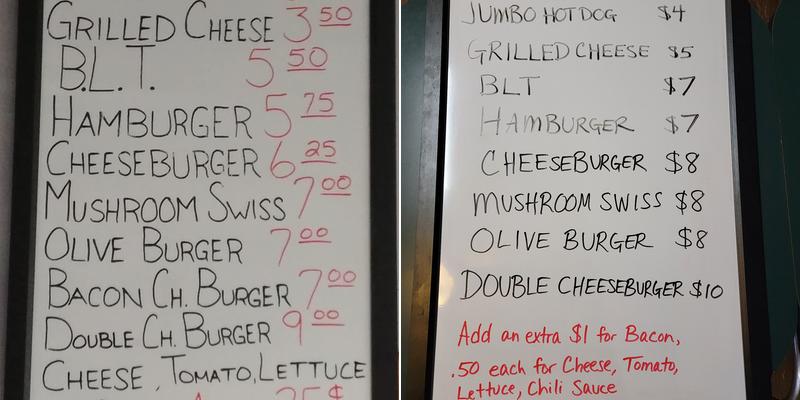 GRILLED CHEESE 3 50
B.L.T. 5 50
HAMBURGER 5 75
CHEESEBURGER 6 25
MUSHROOM SWISS 7 00
OLIVE BURGER 7 00
BACON CH. BURGER 7 00
DOUBLE CH. BURGER 9 00
CHEESE, TOMATO, LETTUCE
25¢
JUMBO HOT DOG $4
GRILLED CHEESE $5
BLT $7
HAMBURGER $7
CHEESEBURGER $8
MUSHROOM SWISS $8
OLIVE BURGER $8
DOUBLE CHEESEBURGER $10
Add an extra $1 for Bacon,
.50 each for Cheese, Tomato,
Lettuce, Chili Sauce